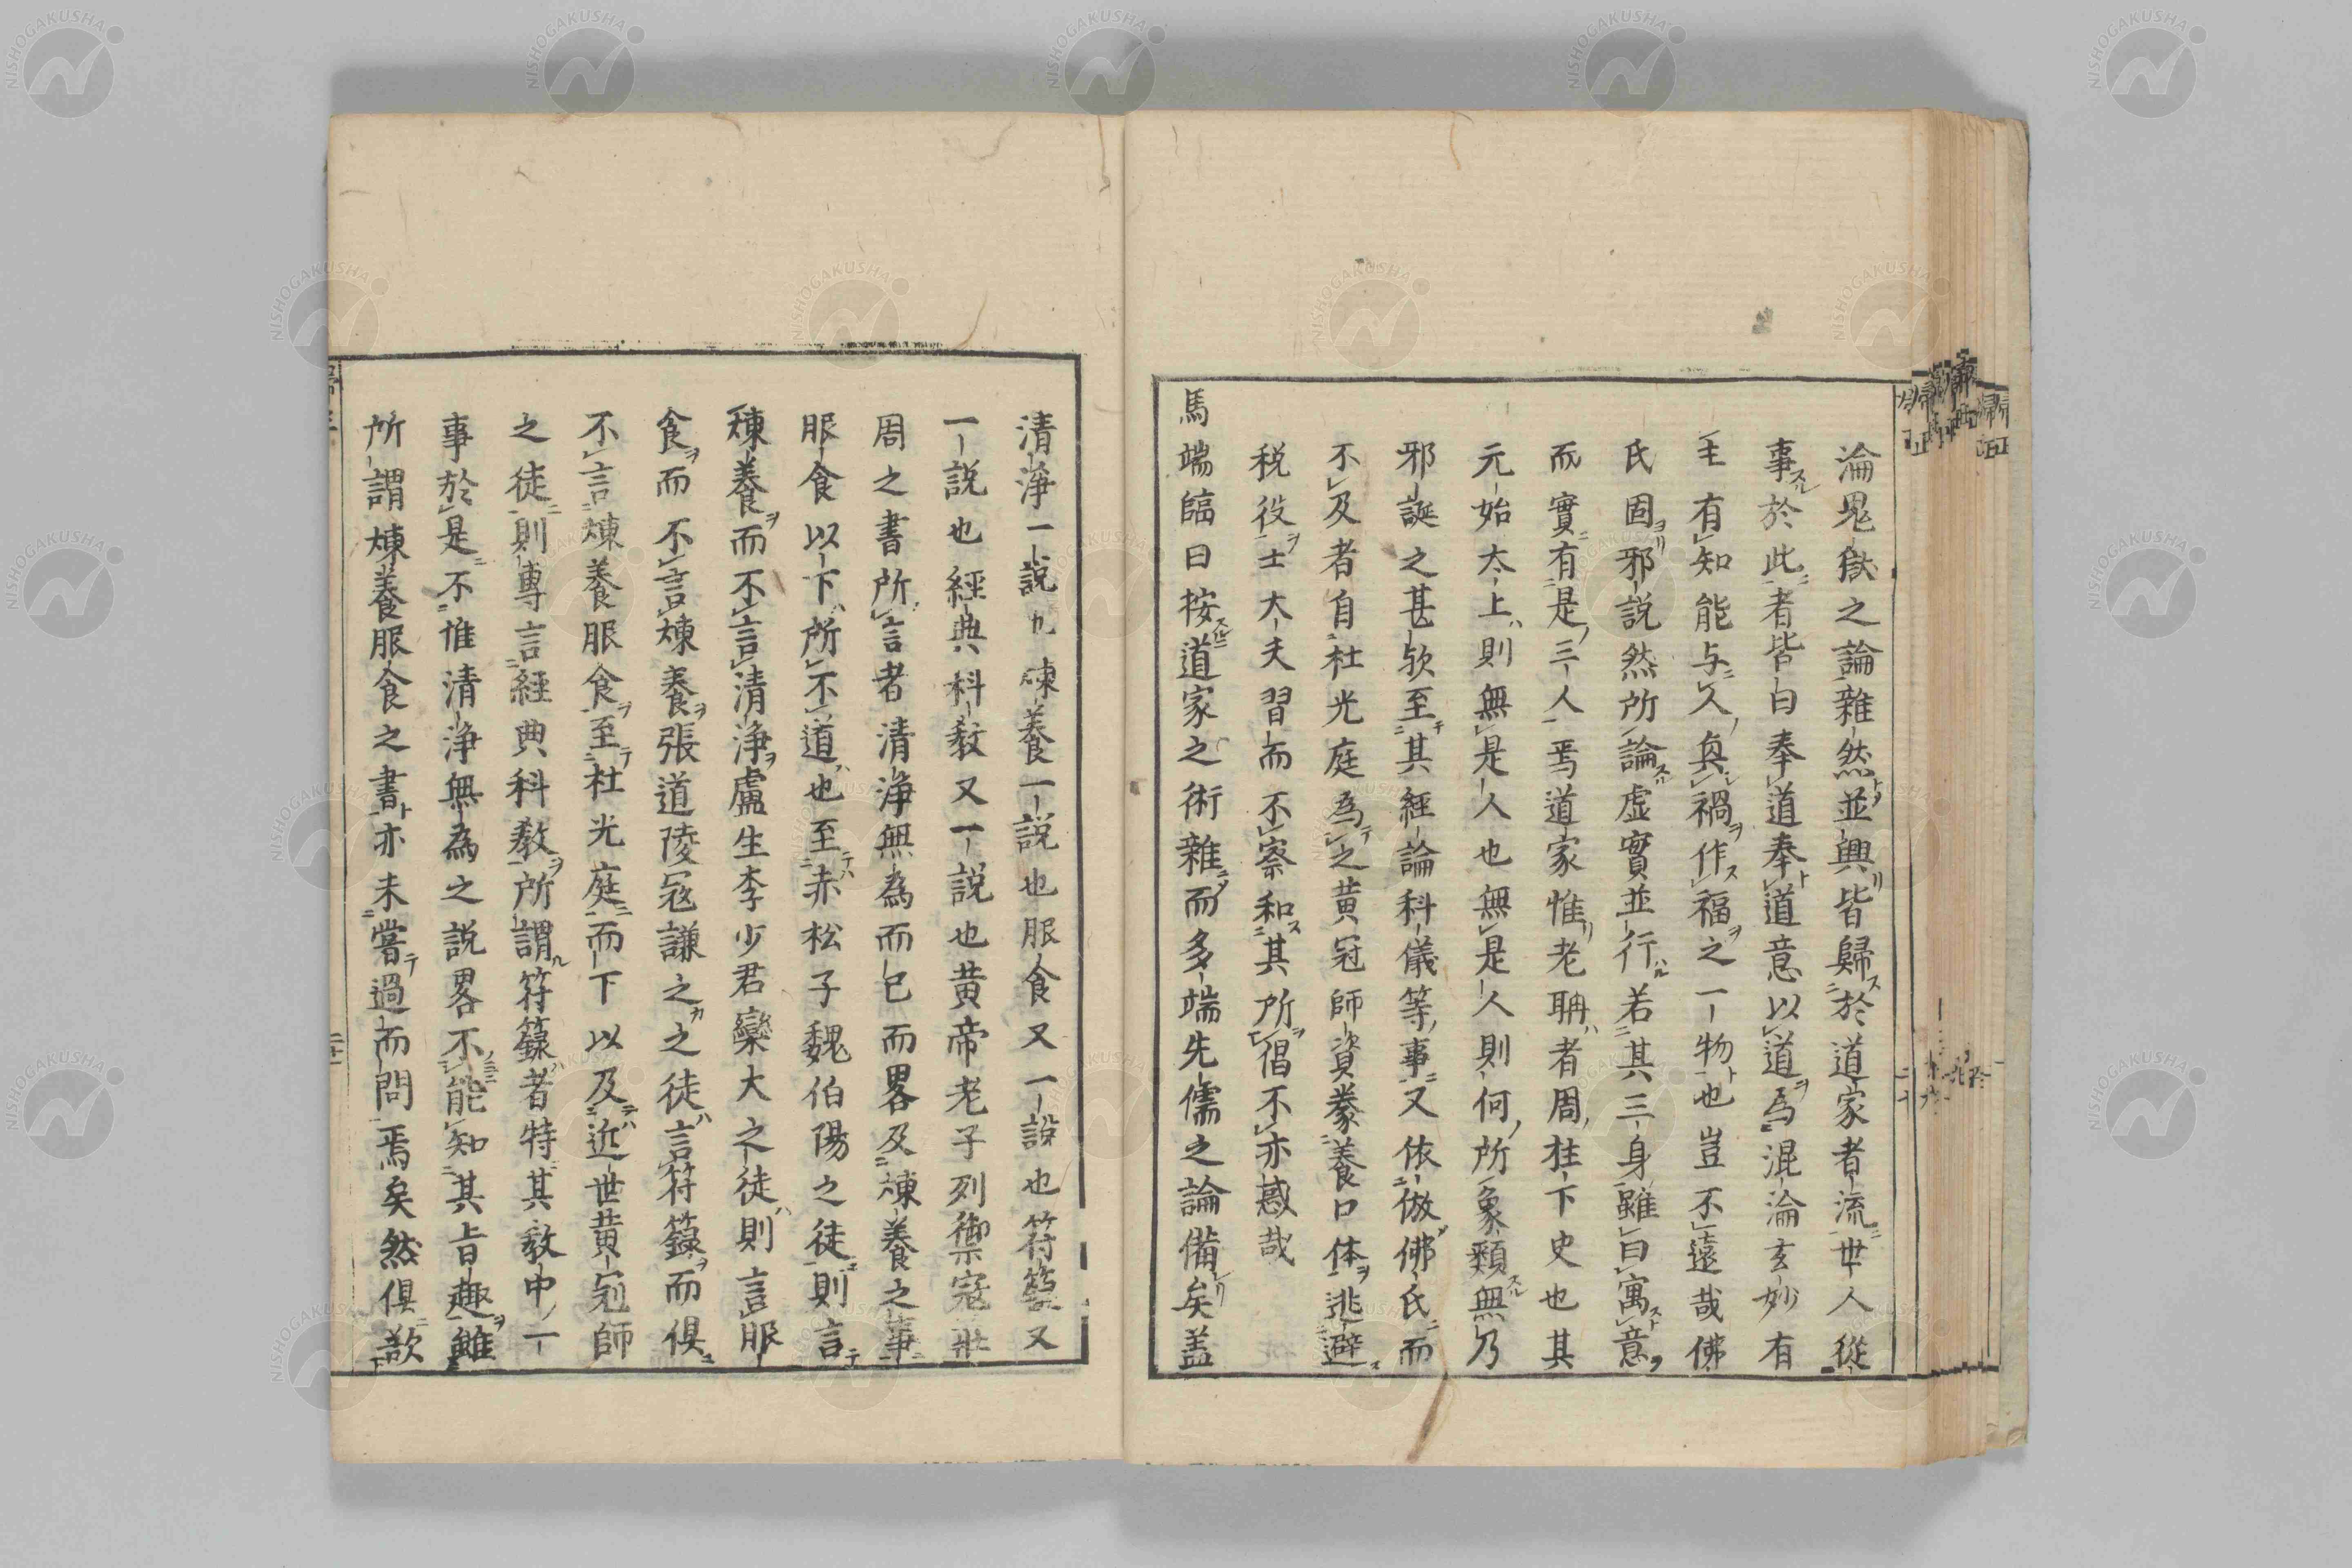 淪鬼獄之論雜然並興皆歸於道家者流世人從
事於此者皆曰奉道奉道意以道爲混淪玄妙有
主有知能与人奐禍作福之一物也豈不遠哉佛
氏固邪說然所論虛實並行若其三身雖曰寓意
而實有是三人焉道家惟老聃者周柱下史也其
元始太上則無是人也無是人則何所象類無乃
邪誕之甚欤至其經論科儀等事又依倣佛氏而
不及者自杜光庭爲之黃冠師資豢養口体逃避
税役士大夫習而不察和其所倡不亦惑哉
馬端臨曰按道家之術雜而多端先儒之論備矣盖
清淨一說也煉養一說也服食又一說也符籙又
一說也經典科教又一說也黃帝老子列禦寇莊
周之書所言者清淨無為而已而畧及煉養之事
服食以下所不道也至赤松子魏伯陽之徒則言
煉養而不言清淨盧生李少君欒大之徒則言服
食而不言煉養張道陵寇謙之之徒言符籙而俱
不言煉養服食至杜光庭而下以及近世黃冠師
之徒則專言經典科教所謂符籙者特其教中一
事於是不惟清淨無為之說畧不能知其旨趣雖
所謂煉養服食之書亦未嘗過而問焉矣然俱欲